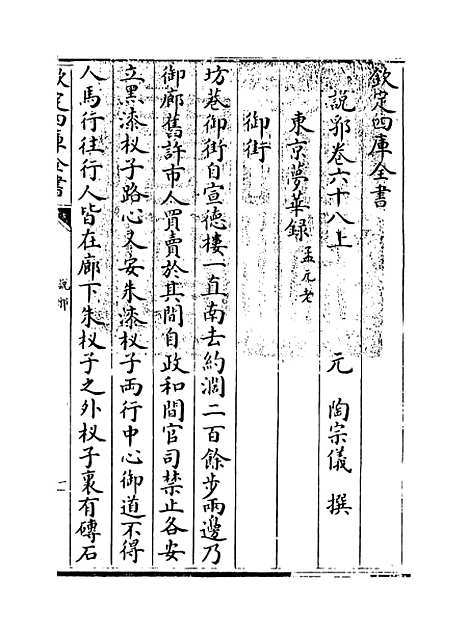 欽定四庫全書
說郛卷六十八上
元 陶宗儀 撰
東京夢華録 孟元老
御街
坊巷御街自宣德樓一直南去約濶二百餘步兩邊乃
御廊舊許市人買賣於其間自政和間官司禁止各安
立黑漆杈子路心又安朱漆杈子兩行中心御道不得
人馬行往行人皆在廊下朱杈子之外杈子裏有磚石
欽定四庫全書
說郛
一